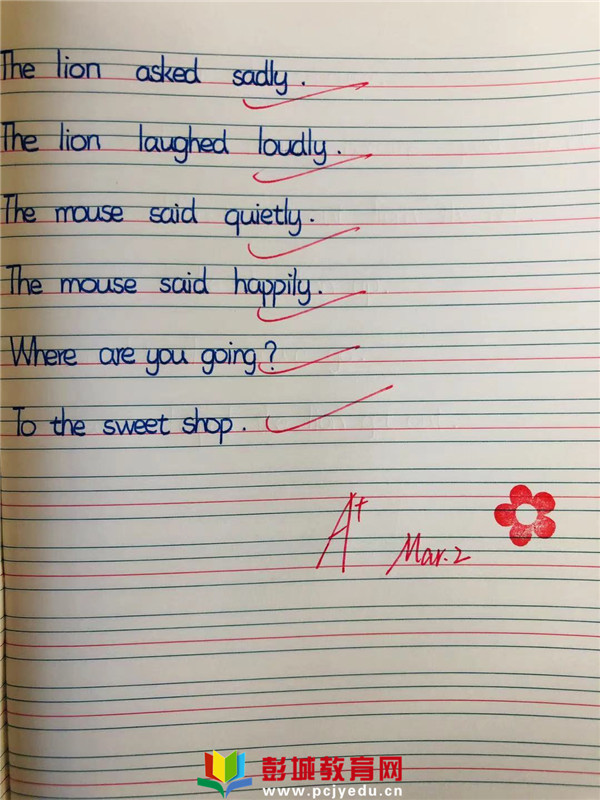 The lion asked sadly.
The lion laughed loudly.
The mouse said quietly.
The mouse said happily.
Where are you going?
To the sweet shop.
A+
Mar.2
彭城教育网
www.pcjyedu.cn